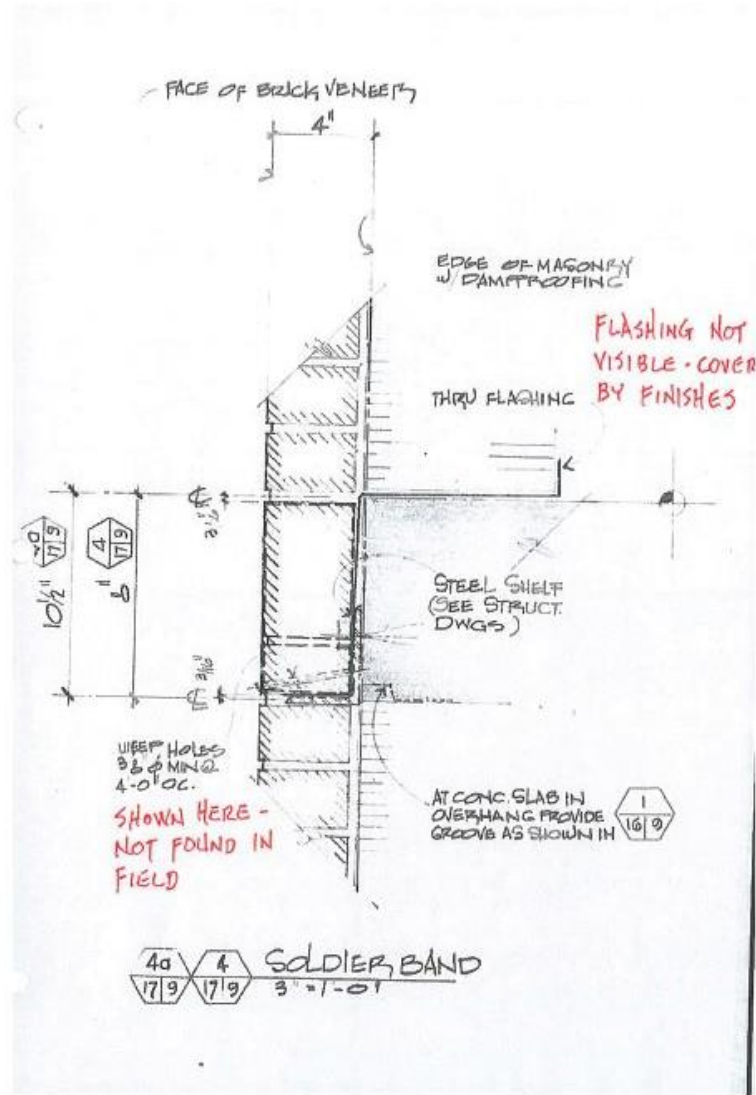 FACE OF BRICK VENEER
4"
EDGE OF MASONRY
W/ DAMPPROOFING
FLASHING NOT
VISIBLE - COVER
BY FINISHES
THRU FLASHING
4a
17|9
10 1/2"
4
17|9
8"
STEEL SHELF
(SEE STRUCT.
DWGS)
3/16"
WEEP HOLES
3/8 ϕ MIN @
4'-0" OC.
SHOWN HERE -
NOT FOUND IN
FIELD
AT CONC. SLAB IN
OVERHANG PROVIDE
GROOVE AS SHOWN IN
1
16|9
4a
17|9
4
17|9
SOLDIER BAND
3" = 1'-0"